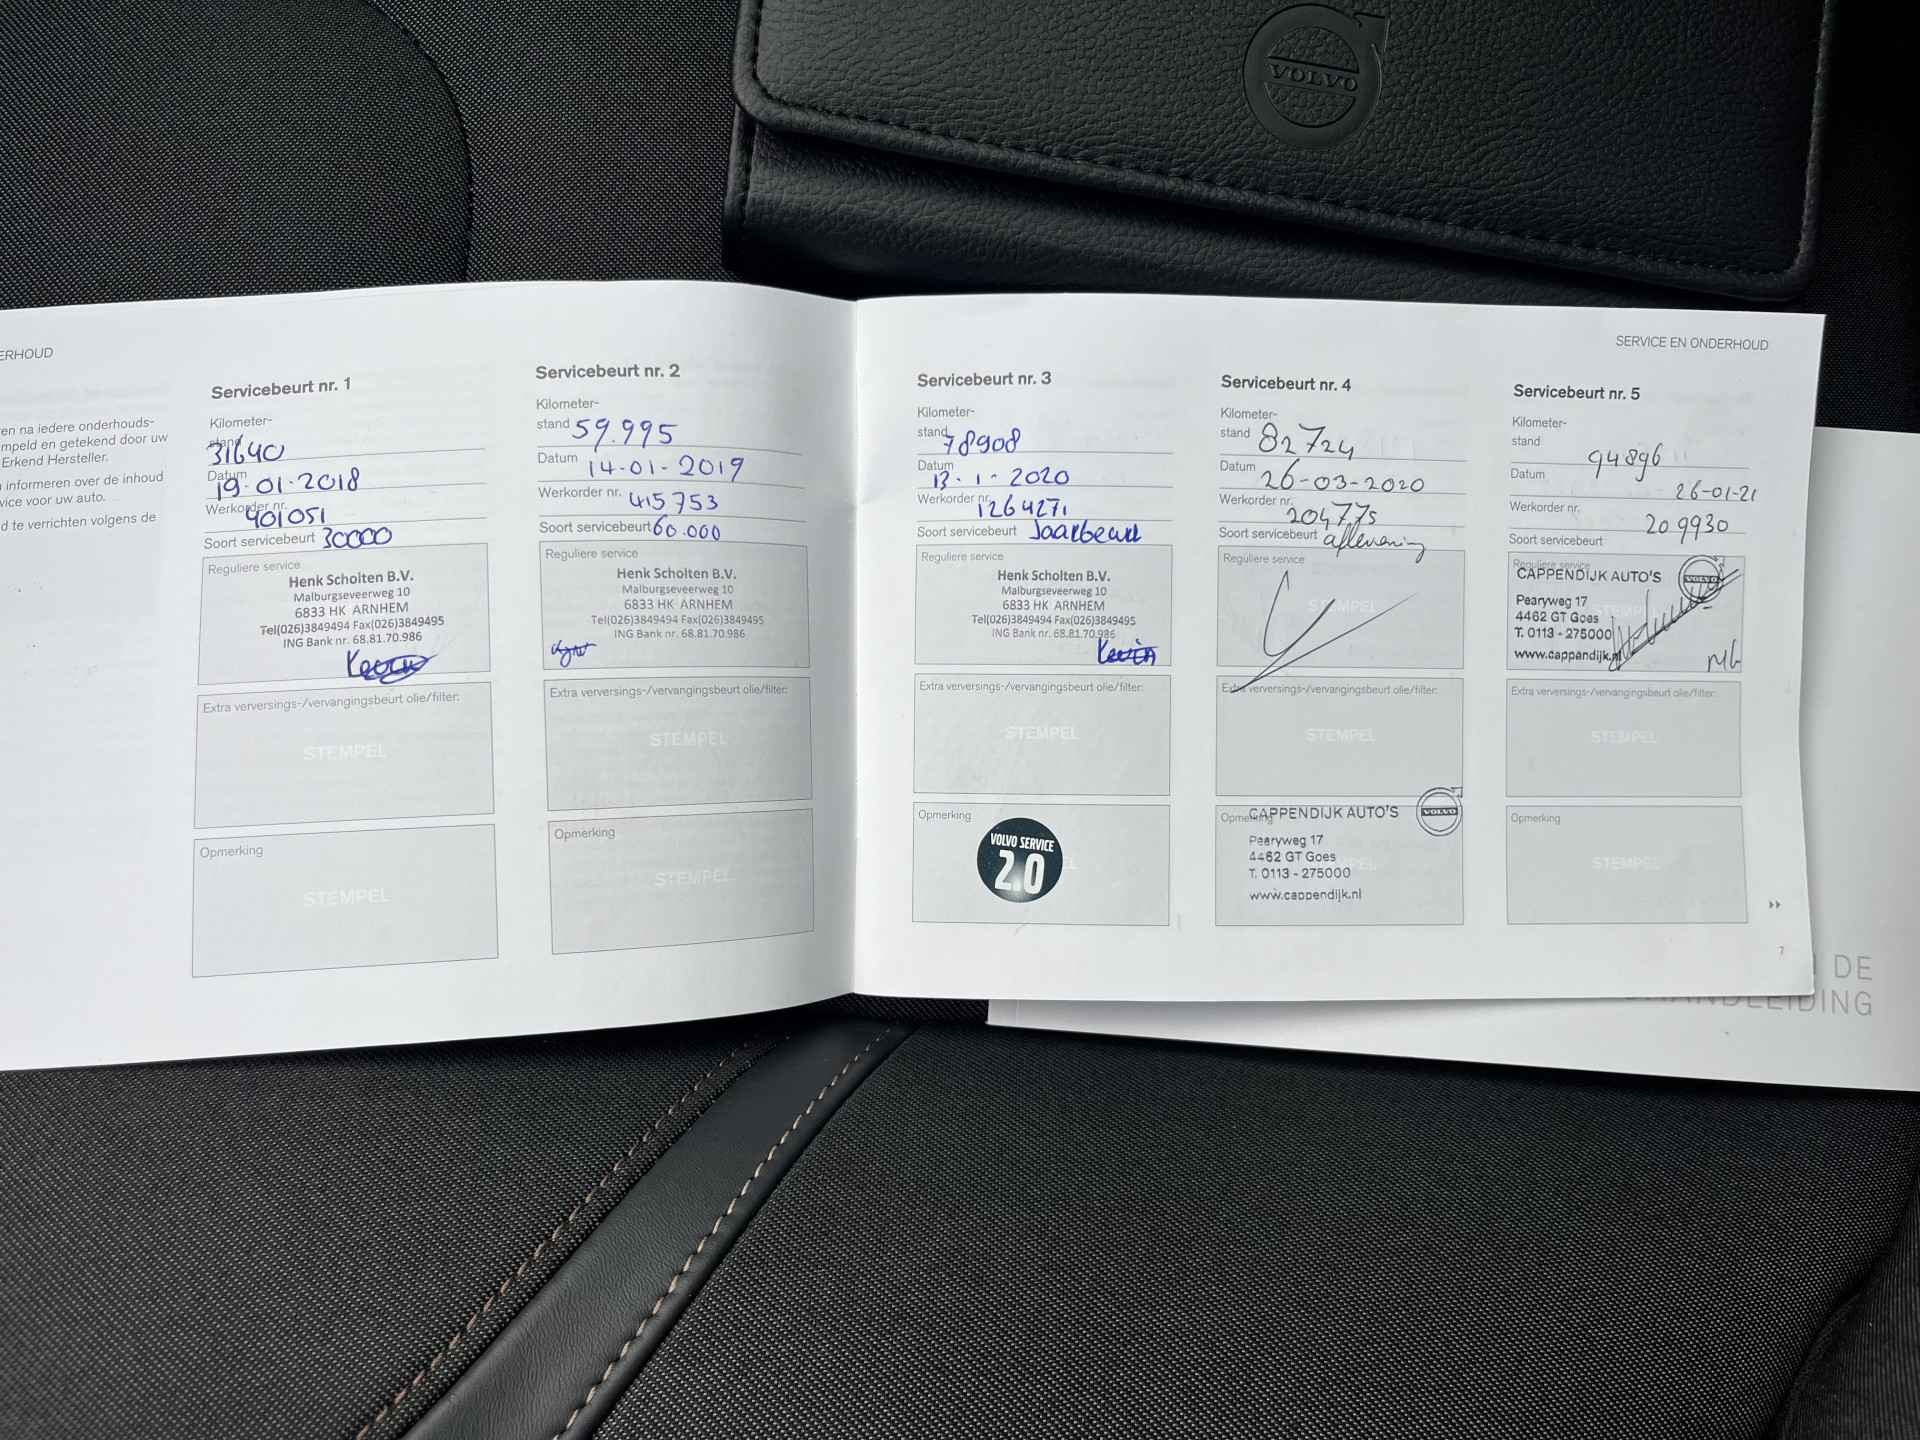 VOLVO
ERHOUD
en na iedere onderhouds-
mpeld en getekend door uw
Erkend Hersteller.
informeren over de inhoud
vice voor uw auto.
d te verrichten volgens de
Servicebeurt nr. 1
Kilometer-
stand 31640
Datum 19-01-2018
Werkorder nr. 401051
Soort servicebeurt 30000
Reguliere service
Henk Scholten B.V.
Malburgseveerweg 10
6833 HK ARNHEM
Tel(026)3849494 Fax(026)3849495
ING Bank nr. 68.81.70.986
Extra verversings-/vervangingsbeurt olie/filter:
STEMPEL
Opmerking
STEMPEL
Servicebeurt nr. 2
Kilometer-
stand 59.995
Datum 14-01-2019
Werkorder nr. 415753
Soort servicebeurt 60.000
Reguliere service
Henk Scholten B.V.
Malburgseveerweg 10
6833 HK ARNHEM
Tel(026)3849494 Fax(026)3849495
ING Bank nr. 68.81.70.986
Extra verversings-/vervangingsbeurt olie/filter:
STEMPEL
Opmerking
STEMPEL
SERVICE EN ONDERHOUD
Servicebeurt nr. 3
Kilometer-
stand 78908
Datum 13-1-2020
Werkorder nr. 1264271
Soort servicebeurt Jaarbeurt
Reguliere service
Henk Scholten B.V.
Malburgseveerweg 10
6833 HK ARNHEM
Tel(026)3849494 Fax(026)3849495
ING Bank nr. 68.81.70.986
Kevin
Extra verversings-/vervangingsbeurt olie/filter:
STEMPEL
Opmerking
VOLVO SERVICE
2.0
Servicebeurt nr. 4
Kilometer-
stand 82724
Datum 26-03-2020
Werkorder nr. 204775
Soort servicebeurt aflevering
Reguliere service
STEMPEL
Extra verversings-/vervangingsbeurt olie/filter:
STEMPEL
Opmerking
CAPPENDIJK AUTO'S VOLVO
Pearyweg 17
4462 GT Goes
T. 0113 - 275000
www.cappendijk.nl
Servicebeurt nr. 5
Kilometer-
stand 94896
Datum 26-01-21
Werkorder nr. 209930
Soort servicebeurt
Reguliere service
CAPPENDIJK AUTO'S VOLVO
Pearyweg 17
4462 GT Goes
T. 0113 - 275000
www.cappendijk.nl
Extra verversings-/vervangingsbeurt olie/filter:
STEMPEL
Opmerking
STEMPEL
7
DE
HANDLEIDING